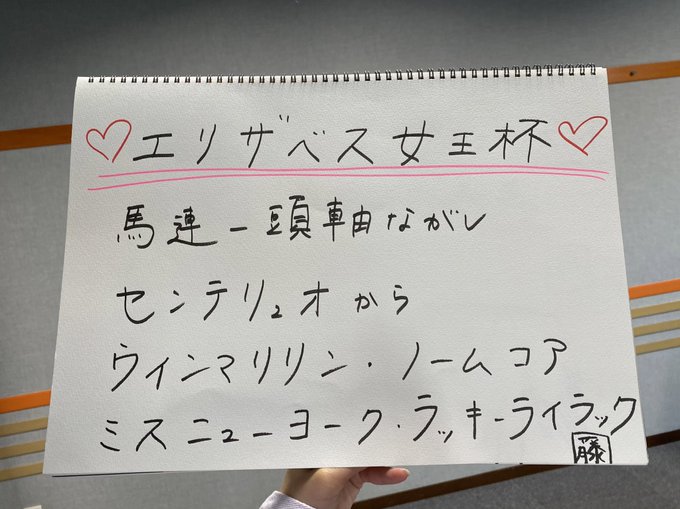 ♡エリザベス女王杯♡
馬連一頭軸ながし
センテリュオから
ウインマリリン・ノームコア
ミスニューヨーク・ラッキーライラック
藤